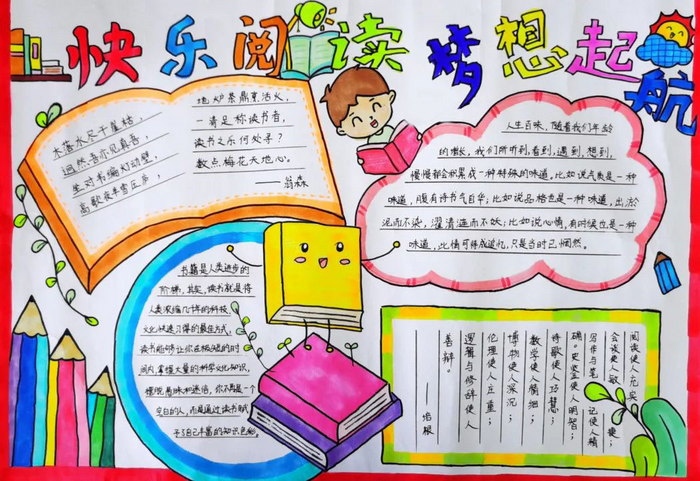 快乐阅读 梦想起航
木落水尽千崖枯，
迥然吾亦见真吾。
坐对韦编灯动壁，
高歌夜半雪压庐。
地炉茶鼎烹活火，
一清足称读书者。
读书之乐何处寻？
数点梅花天地心。
——翁森
人生百味，随着我们年龄
的增长，我们所听到，看到，遇到，想到，
慢慢都会积累成一种特殊的味道，比如说气质是一种
味道，腹有诗书气自华；比如说品格也是一种味道，出淤
泥而不染，濯清涟而不妖；比如说心情，有时候也是一种
味道，此情可待成追忆，只是当时已惘然。
书籍是人类进步的
阶梯，其实，读书就是将
人类浓缩几千年的科技、
文化快速习得的最佳方式。
读书能够让你在极短的时
间内，掌握大量的科学文化知识，
摆脱愚昧和迷信，你不再是一个
空白的人，而是通过读书赋
予自己丰富的知识色彩
阅读使人充实；
会谈使人敏捷；
写作与笔记使人精
确。史鉴使人明智；
诗歌使人巧慧；
数学使人精细；
博物使人深沉；
伦理使人庄重；
逻辑与修辞使人
善辩。
——培根